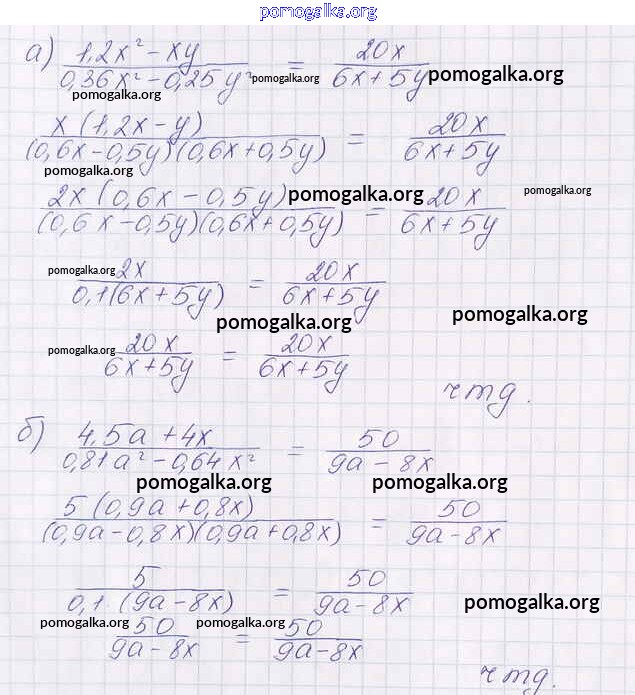 pomogalka.org
а) 1,2x² - xy / 0,36x² - 0,25y² = 20x / 6x + 5y
pomogalka.org pomogalka.org pomogalka.org
x(1,2x - y) / (0,6x - 0,5y)(0,6x + 0,5y) = 20x / 6x + 5y
pomogalka.org
2x(0,6x - 0,5y) / (0,6x - 0,5y)(0,6x + 0,5y) = 20x / 6x + 5y
pomogalka.org pomogalka.org
2x / 0,1(6x + 5y) = 20x / 6x + 5y
pomogalka.org
pomogalka.org pomogalka.org
20x / 6x + 5y = 20x / 6x + 5y
pomogalka.org
чтд.
б) 4,5a + 4x / 0,81a² - 0,64x² = 50 / 9a - 8x
pomogalka.org pomogalka.org
5(0,9a + 0,8x) / (0,9a - 0,8x)(0,9a + 0,8x) = 50 / 9a - 8x
5 / 0,1 · (9a - 8x) = 50 / 9a - 8x
pomogalka.org
50 / 9a - 8x = 50 / 9a - 8x
pomogalka.org pomogalka.org
чтд.